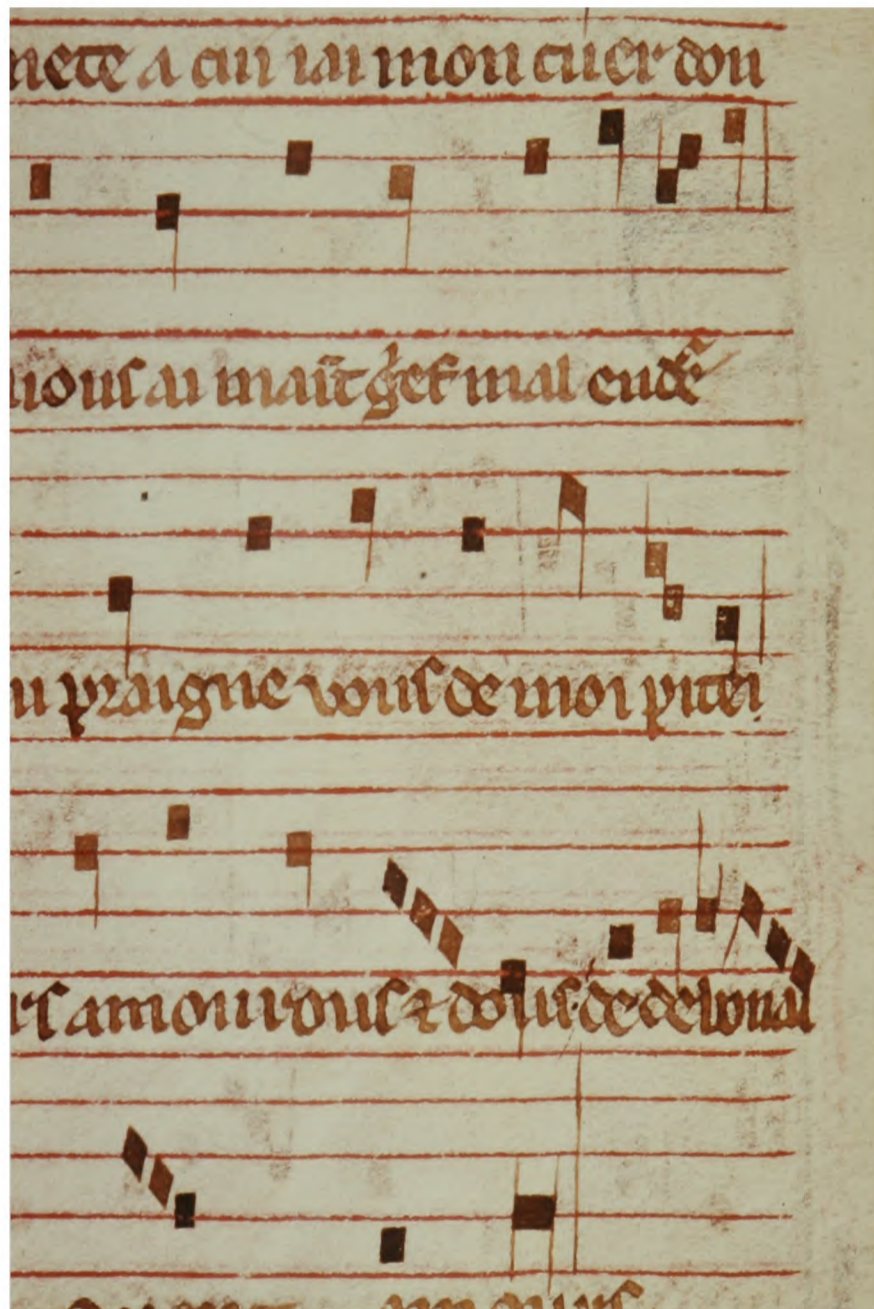 mete a cui iai mon cuer don
uous ai maīt gͥef mal endē
u praigne vous de moi pitei
rs amourous ⁊ dous de deloual